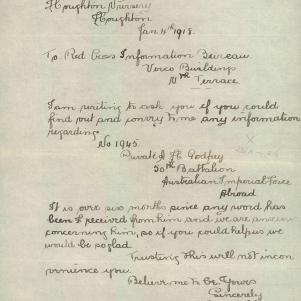 Houghton Nursery
Houghton
Jan 4th 1918.
To Red Cross Information Bureau
Verco Buildings
Nth Terrace
I am writing to ask you if you could
find out and convey to me any information
regarding
No 1945.
Private A H. Godfrey
50th Battalion
Australian Imperial Force
Abroad.
It is over six months since any word has
been received from him and we are anxious
concerning him, so if you could help us we
would be so glad.
Trusting this will not incon
venience you.
Believe me to be. Yours
Sincerely